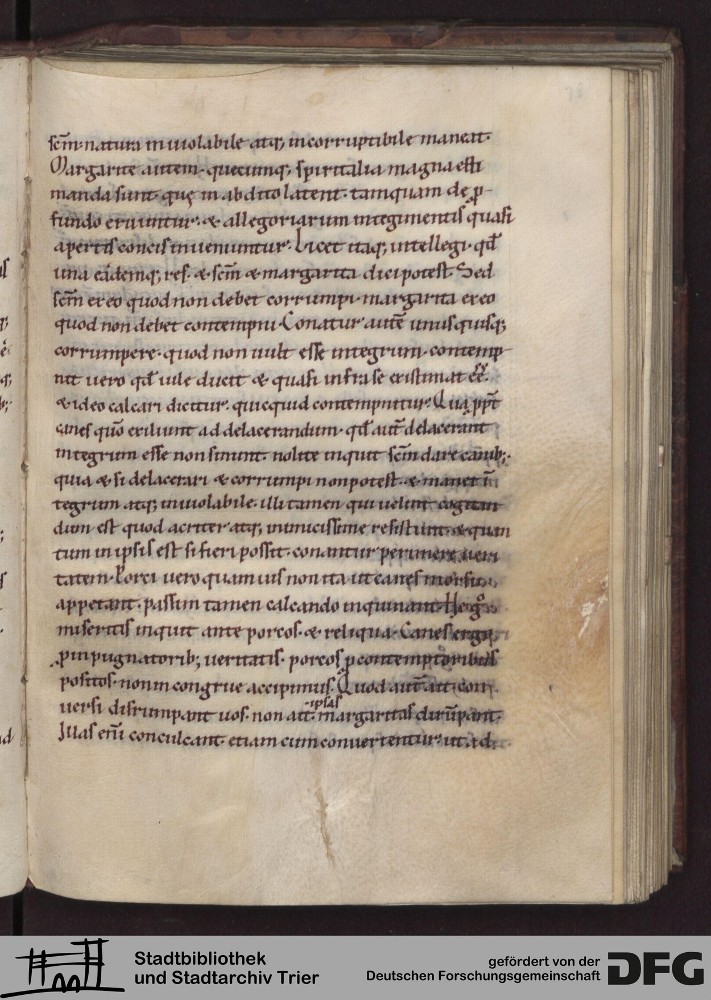 scm̄· natura inviolabile atq; incorruptibile maneat·
Margarite autem· quecunq; spiritalia magna esti
manda sunt· quę in abdito latent· tamquam de ꝓ-
fundo eruuntur· & allegoriarum integumentis quasi
apertis concis inveniuntur· Licet itaq; intellegi· qđ
una eademq; res· & scm̄ & margarita dici potest· Sed
scm̄ ex eo quod non debet corrumpi· margarita ex eo
quod non debet contempni· Conatur autē unusquisq;
corrumpere· quod non uult esse integrum· contemp
nit uero qđ uile ducit & quasi infra se existimat eē·
& ideo calcari dicitur· quicquid contempnitur· Quaꝓpt̄
canes quō exiliunt ad delacerandum· qđ aut̄ delacerant
integrum esse non sinunt· nolite inquit scm̄ dare canib;·
quia & si delacerari & corrumpi non potest· & manet ī
tegrum atq; inuiolabile· illi tamen qui uelint cogitan
dum est quod acriter atq; inimicissime resistunt· & quan
tum in ipsis est si fieri possit· conantur perimere ueri
tatem· Porci uero quamuis non ita ut canes morsu
appetant· passim tamen calcando inquinant· Ne gͦ
miseritis inquit ante porcos· & reliqua· Canes ergo
ꝓ inpugnatorib; ueritatis· porcos ꝓ contemptoribus
positos· non incongrue accipimus· Quod aut̄ ait con
uersi disrumpant uos· non ait ipsas margaritas dirūpant·
Illas eni conculcant· etiam cum conuertentur· ut ad
Stadtbibliothek
und Stadtarchiv Trier
gefördert von der
Deutschen Forschungsgemeinschaft DFG